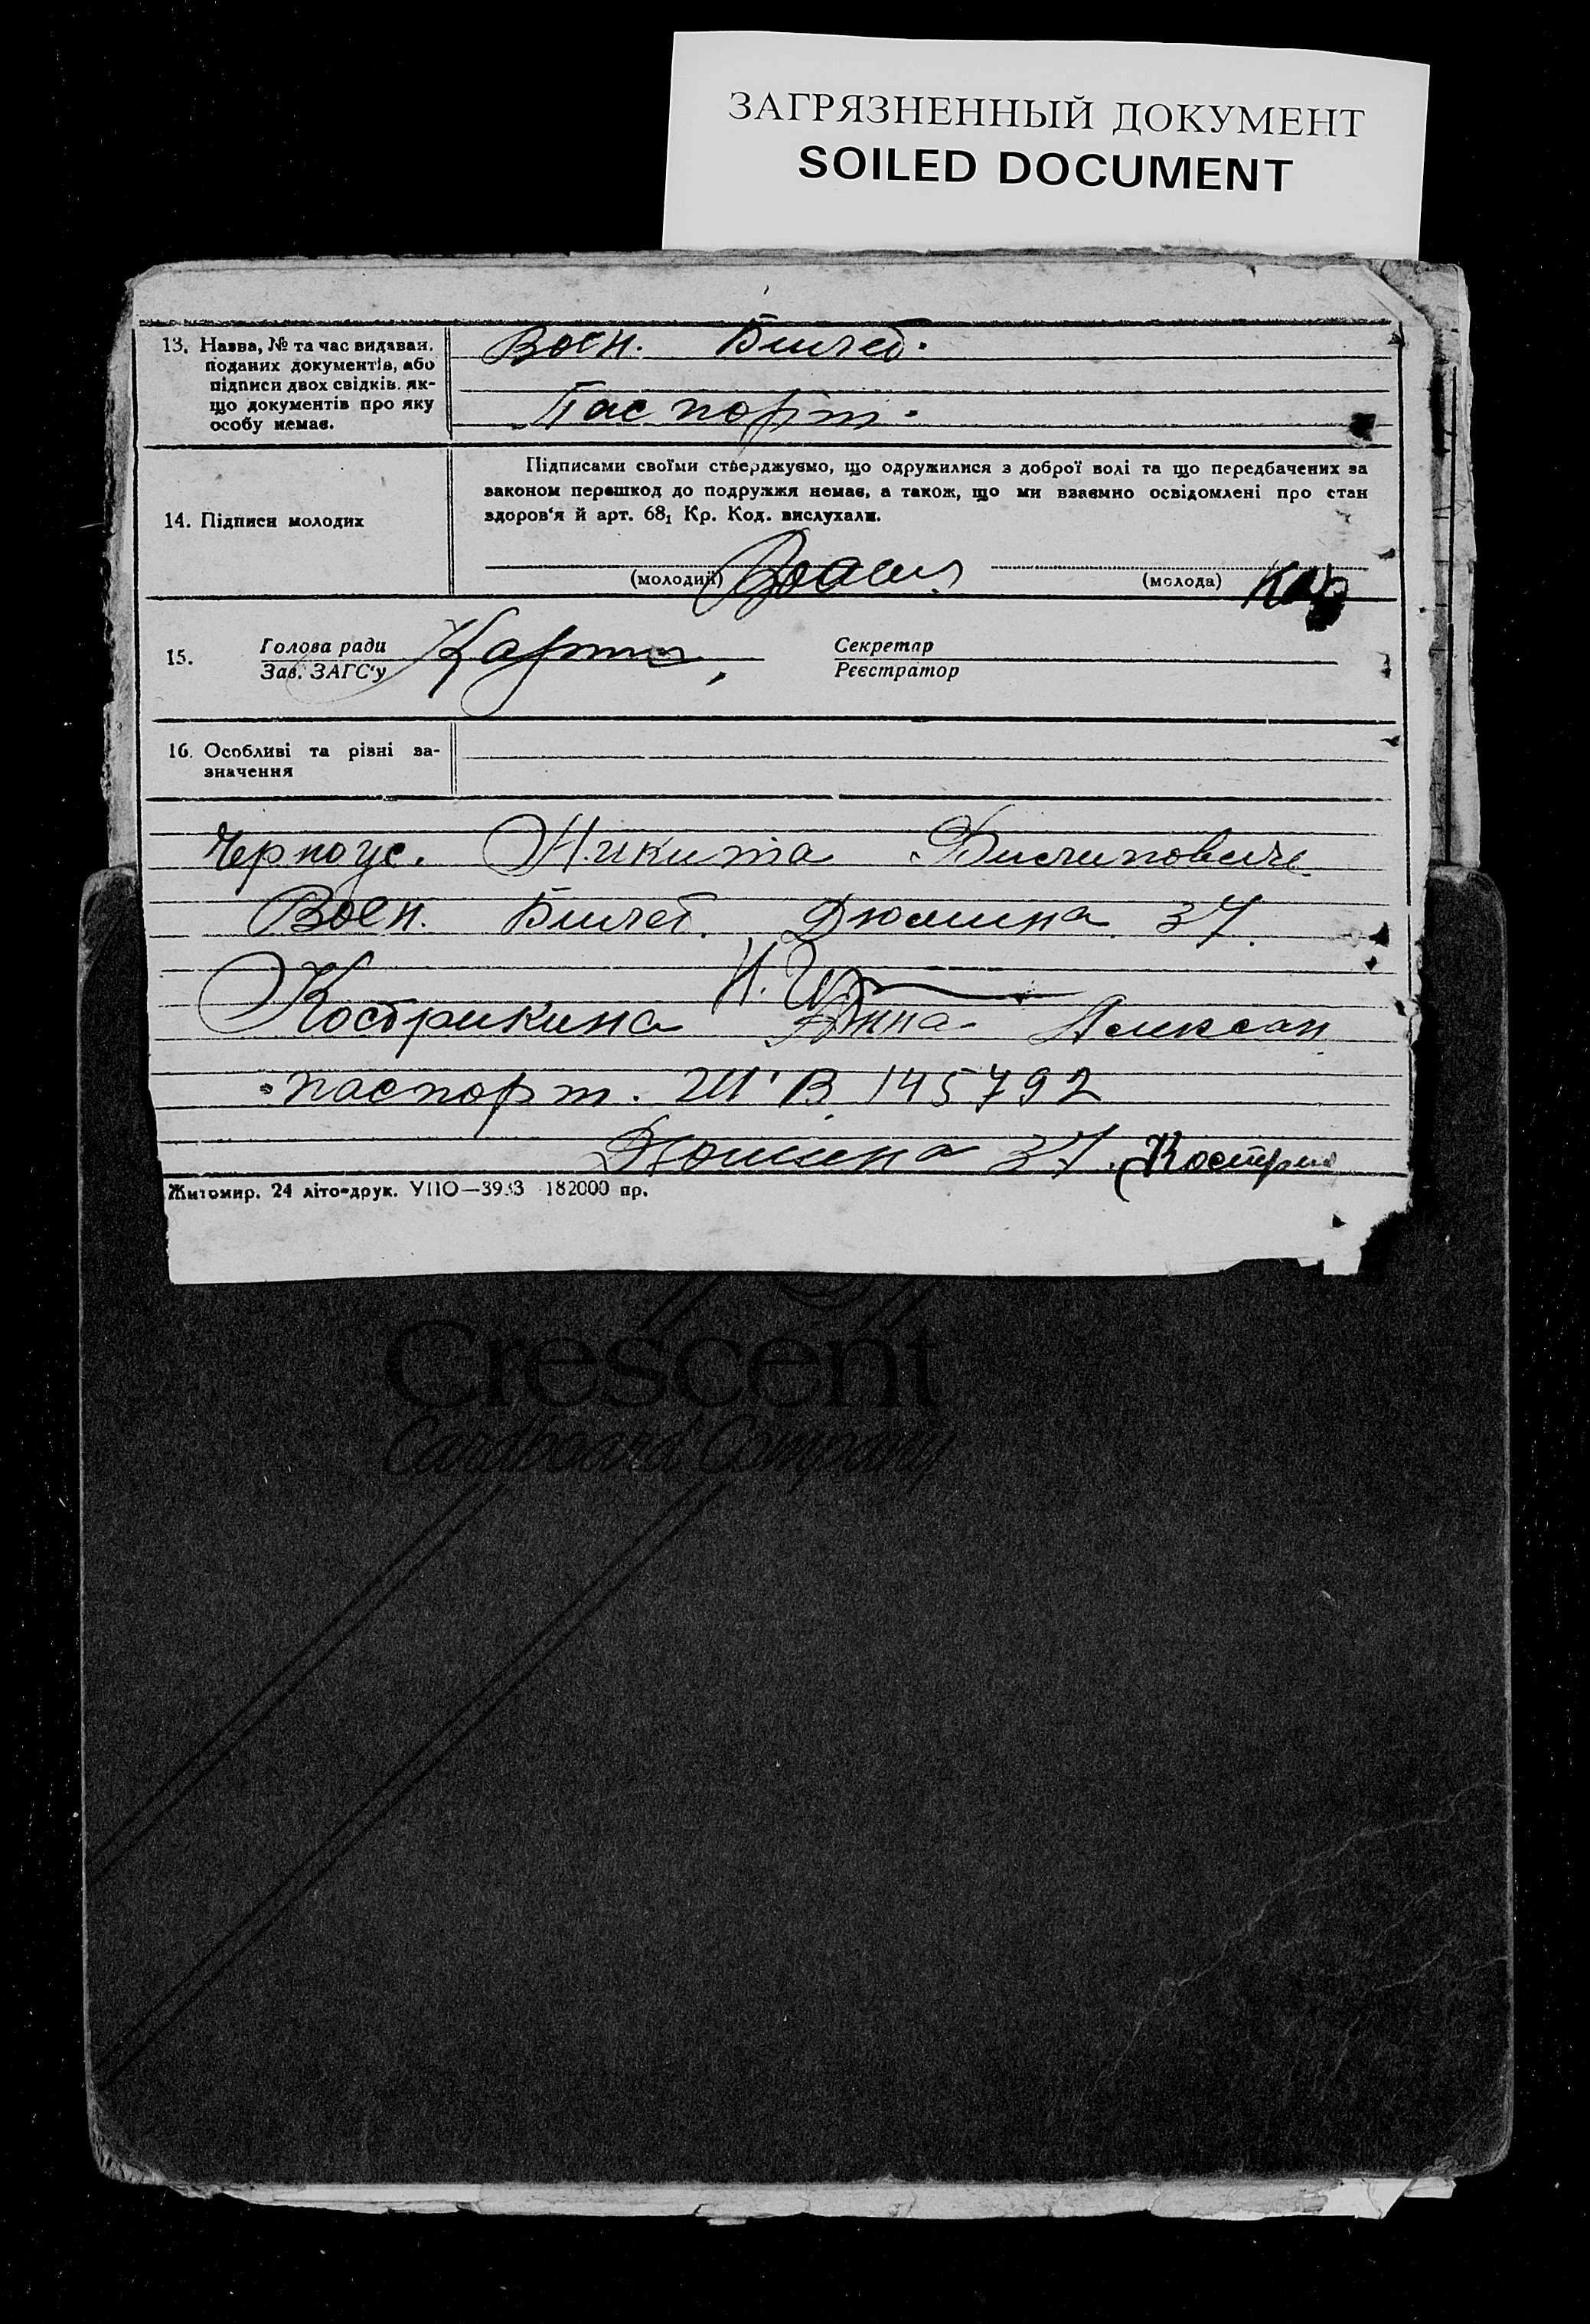 ЗАГРЯЗНЕННЫЙ ДОКУМЕНТ
SOILED DOCUMENT
13. Назва, № та час видаван. поданих документів, або підписи двох свідків, якщо документів про яку особу немає.
Воен. Билет.
Паспорт.
14. Підписи молодих
Підписами своїми стверджуємо, що одружилися з доброї волі та що передбачених за
законом перешкод до подружжя немає, а також, що ми взаємно освідомлені про стан
здоров'я й арт. 68₁ Кр. Код. вислухали.
(молодий) (молода)
15. Голова ради Секретар
Зав. ЗАГС'у Реєстратор
16. Особливі та різні зазначення
Черноус. Никита Филипович
Воен. Билет. Дюмина 37.
Кострикина Анна Алексан
паспорт. III В 145792
Дюмина 37. Кострик
Житомир. 24 літо-друк. УПО—3933 182000 пр.
Crescent
Cardboard Company